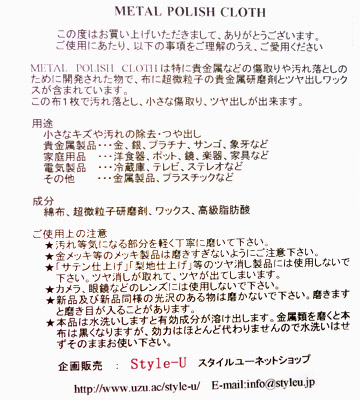 METAL POLISH CLOTH
この度はお買い上げいただきまして、ありがとうございます。
ご使用にあたり、以下の事項をご理解のうえ、ご愛用ください
METAL POLISH CLOTHは特に貴金属などの傷取りや汚れ落としの
ために開発された物で、布に超微粒子の貴金属研磨剤とツヤ出しワック
スが含まれています。
この布1枚で汚れ落とし、小さな傷取り、ツヤ出しが出来ます。
用途
小さなキズや汚れの除去・つや出し
貴金属製品・・・金、銀、プラチナ、サンゴ、象牙など
家庭用品 ・・・洋食器、ポット、鏡、楽器、家具など
電気製品 ・・・冷蔵庫、テレビ、ステレオなど
その他 ・・・金属製品、プラスチックなど
成分
綿布、超微粒子研磨剤、ワックス、高級脂肪酸
ご使用上の注意
★汚れ等気になる部分を軽く丁寧に磨いて下さい。
★金メッキ等のメッキ製品は磨きすぎないようにご注意下さい。
★「サテン仕上げ」「梨地仕上げ」等のツヤ消し製品には使用しないで
下さい。ツヤ消しが取れて、ツヤが出てしまいます。
★カメラ、眼鏡などのレンズには使用しないで下さい。
★新品及び新品同様の光沢のある物は磨かないで下さい。磨きます
と磨き目が入ることがあります。
★本品は水洗いしますと有効成分が溶け出します。金属類を磨くと本
布は黒くなりますが、効力はほとんど代わりませんので水洗いはせ
ずそのままお使い下さい。
企画販売 : Style-U スタイルユーネットショップ
http://www.uzu.ac/style-u/ E-mail:info@styleu.jp